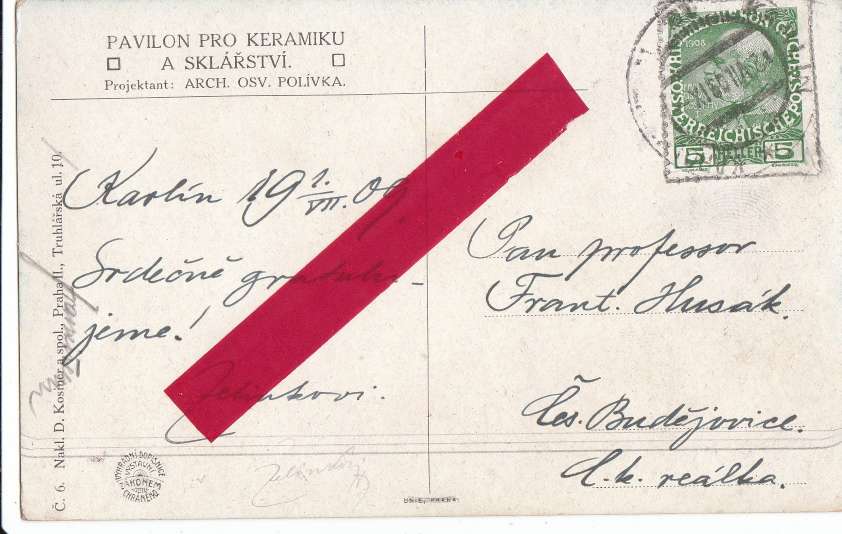 PAVILON PRO KERAMIKU
A SKLÁŘSTVÍ.
Projektant: ARCH. OSV. POLÍVKA.
Karlín 19 1./VII. 09.
Srdečně gratulu-
jeme!
Jelínkovi.
Pan professor
Frant. Husák.
Čes. Budějovice.
C. k. reálka.
Č. 6. Nakl. D. Kosiner a spol., Praha II., Truhlářská ul. 10.
1908
5 HELLER 5
UNIE, PRAHA